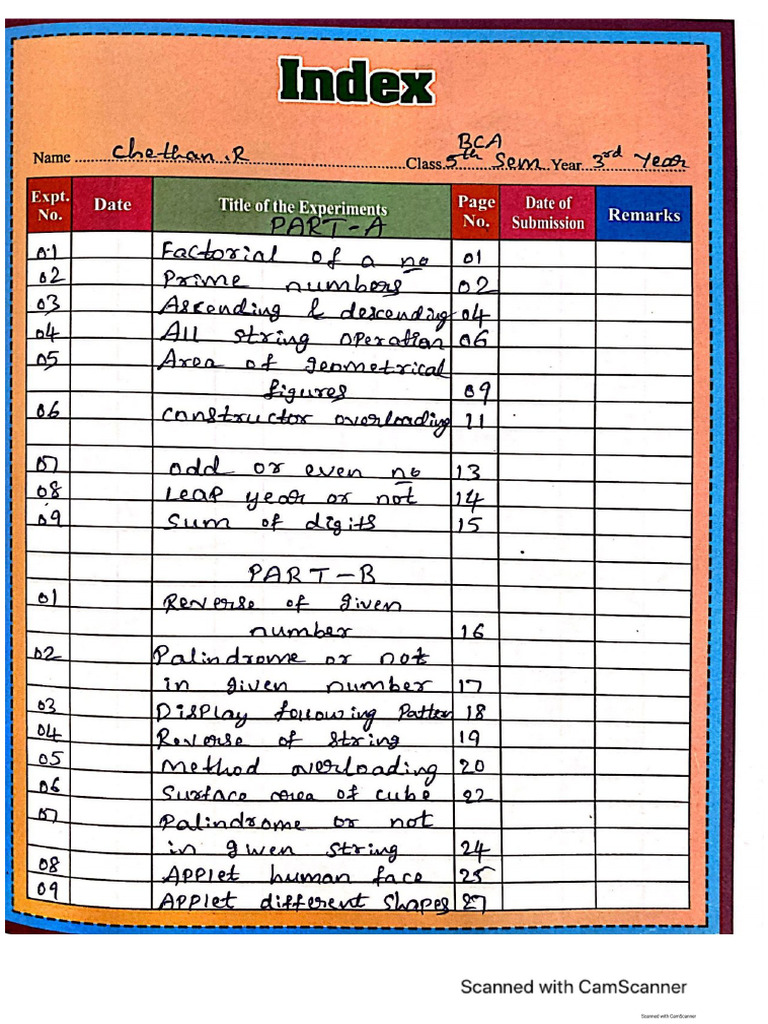 Index
Name Chethan .R Class BCA 5th Sem Year 3rd Year
Expt. No. Date Title of the Experiments Page No. Date of Submission Remarks
PART-A
01 Factorial of a no 01
02 Prime numbers 02
03 Ascending & descending 04
04 All string operation 06
05 Area of geometrical
figures 09
06 Constructor overloading 11
07 odd or even no 13
08 Leap year or not 14
09 Sum of digits 15
PART-B
01 Reverse of given
number 16
02 Palindrome or not
in given number 17
03 Display following Pattern 18
04 Reverse of string 19
05 Method overloading 20
06 Surface area of cube 22
07 Palindrome or not
in given string 24
08 Applet human face 25
09 Applet different shapes 27
Scanned with CamScanner
Scanned with CamScanner